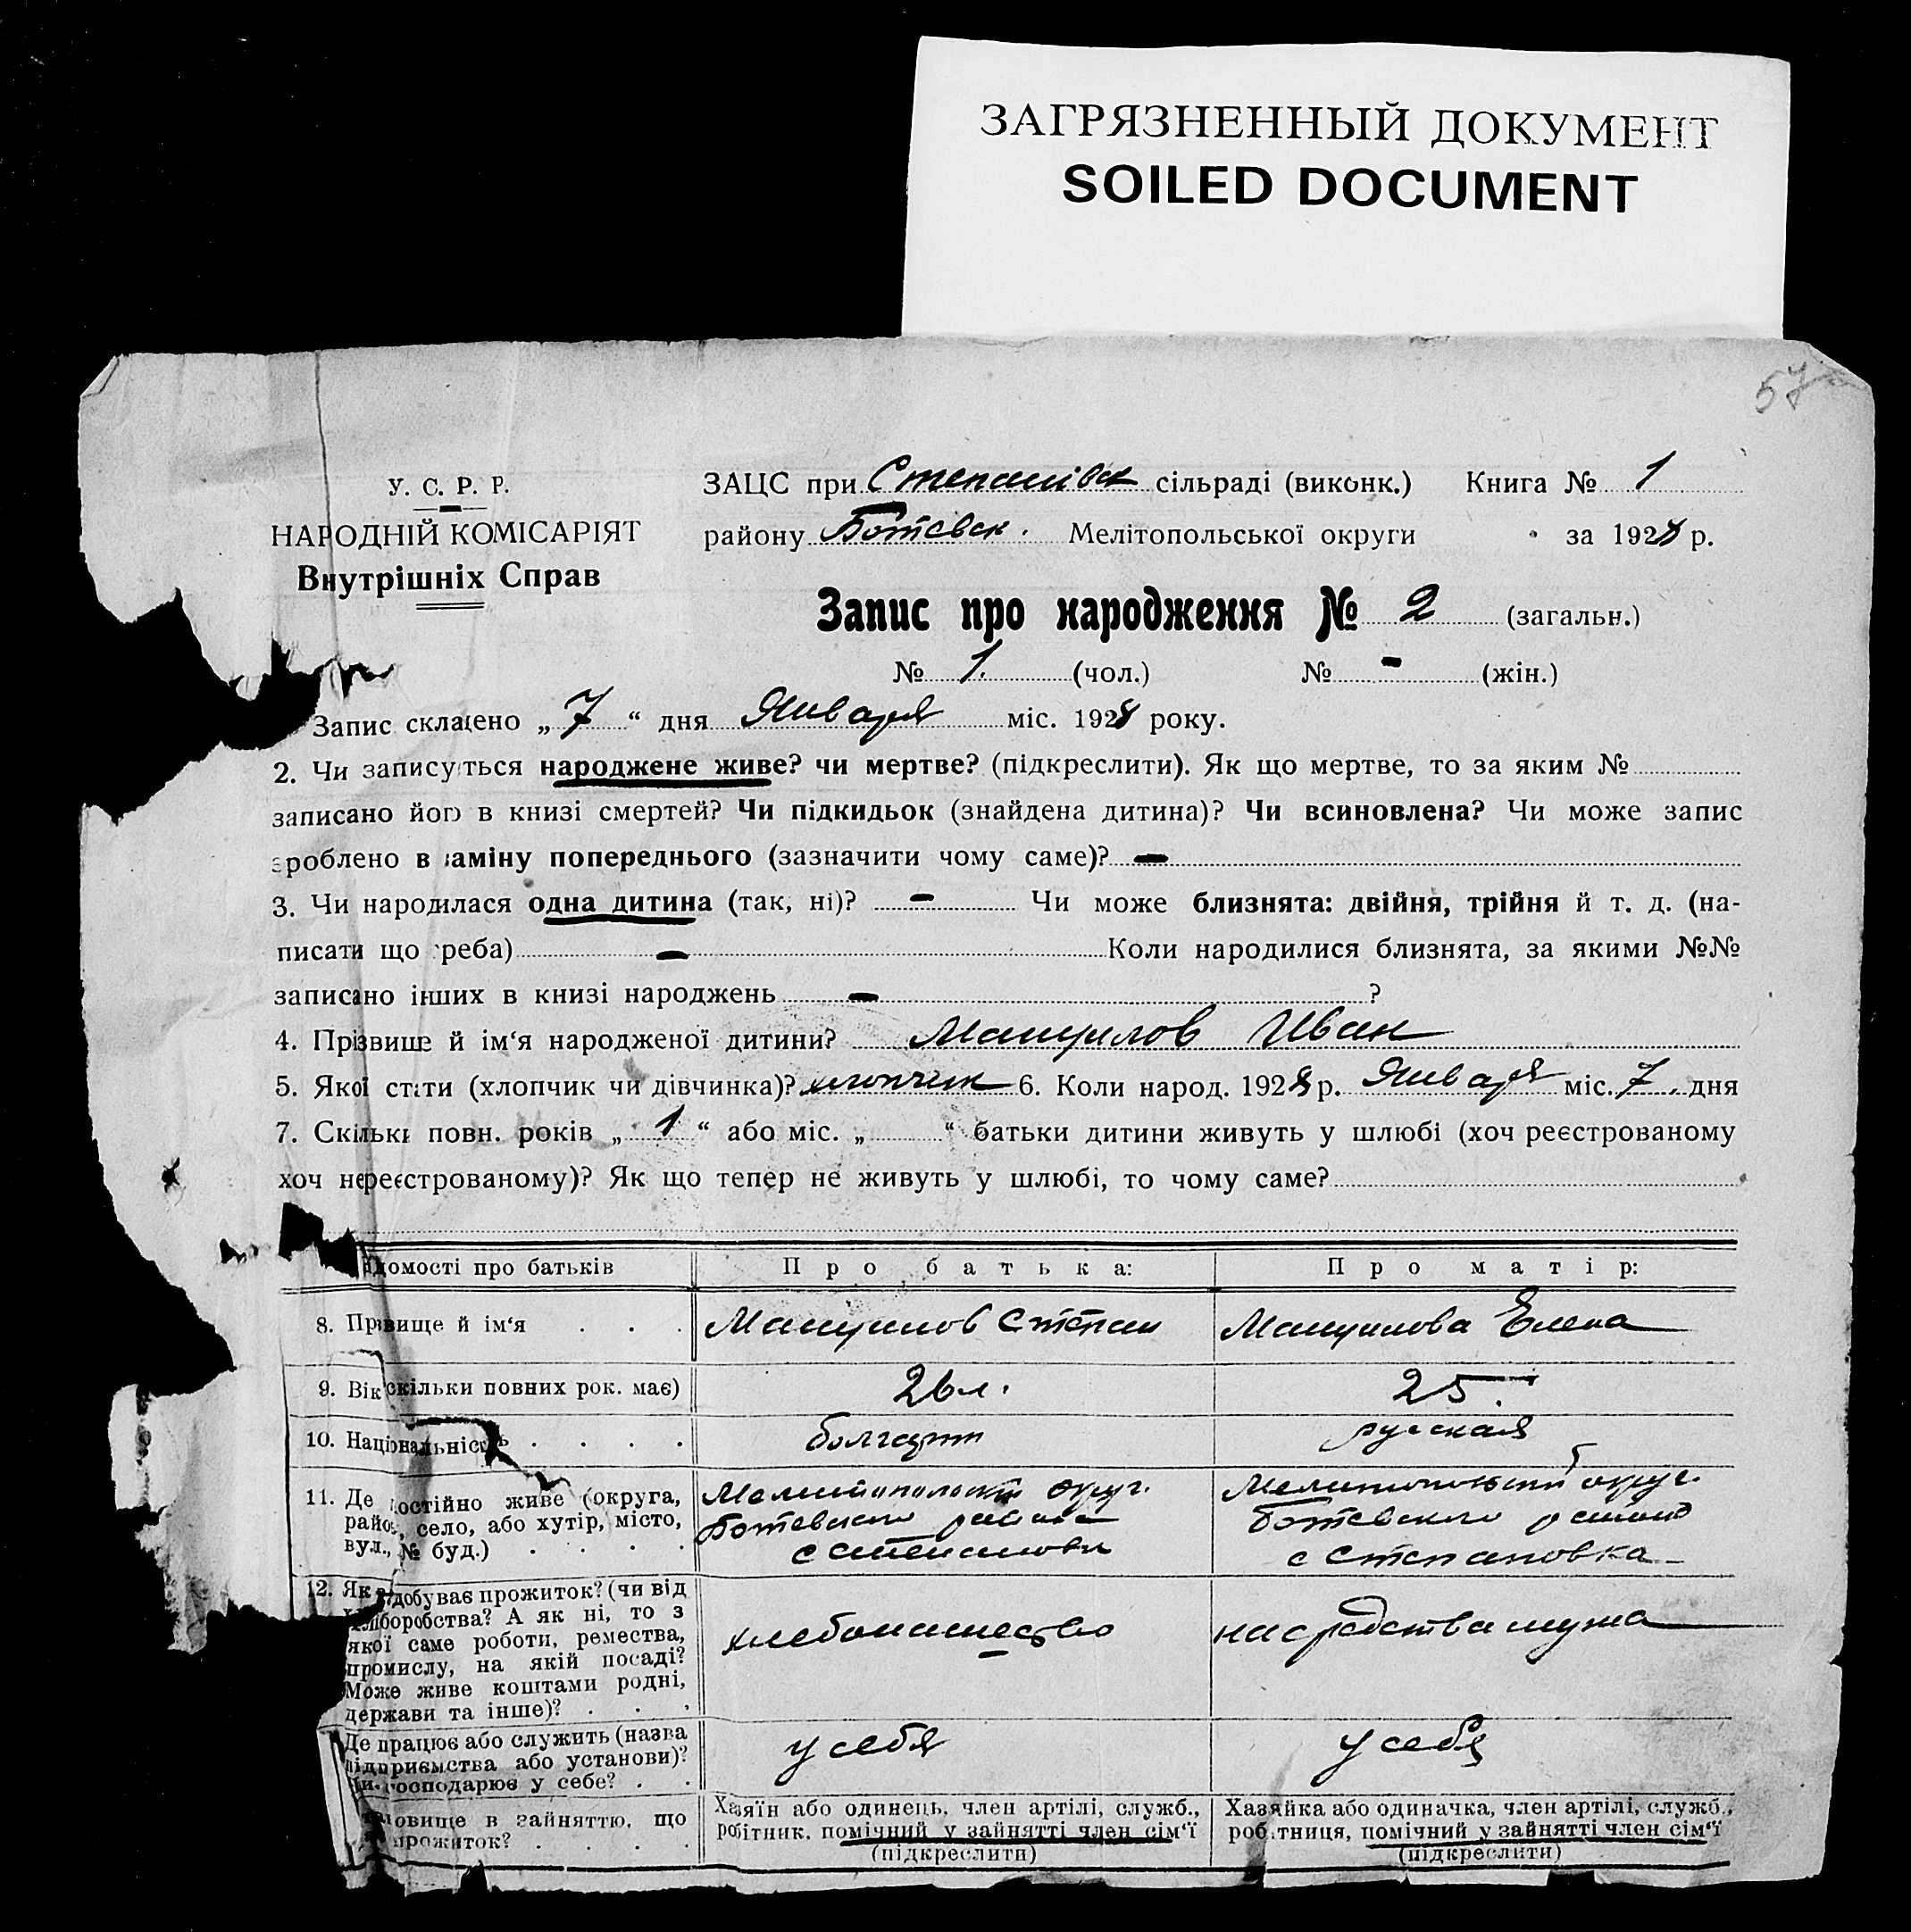 ЗАГРЯЗНЕННЫЙ ДОКУМЕНТ
SOILED DOCUMENT
57
У. С. Р. Р.
НАРОДНІЙ КОМІСАРІЯТ
Внутрішніх Справ
ЗАЦС при Степанівск сільраді (виконк.) Книга № 1
району Ботєвск. Мелітопольської округи за 1928 р.
Запис про народження № 2 (загальн.)
№ 1. (чол.) № - (жін.)
Запис складено „ 7 “ дня Января міс. 1928 року.
2. Чи записується народжене живе? чи мертве? (підкреслити). Як що мертве, то за яким №
записано його в книзі смертей? Чи підкидьок (знайдена дитина)? Чи всиновлена? Чи може запис
зроблено в заміну попереднього (зазначити чому саме)? -
3. Чи народилася одна дитина (так, ні)? - Чи може близнята: двійня, трійня й т. д. (на-
писати що треба) - Коли народилися близнята, за якими №№
записано інших в книзі народжень - ?
4. Прізвище й ім‘я народженої дитини? Мануилов Иван
5. Якої стати (хлопчик чи дівчинка)? хлопчик 6. Коли народ. 1928 р. Января міс. 7. дня
7. Скільки повн. років „ 1 “ або міс. „ “ батьки дитини живуть у шлюбі (хоч реєстрованому
хоч нереєстрованому)? Як що тепер не живуть у шлюбі, то чому саме?
домості про батьків Про батька: Про матір:
8. Прізвище й ім‘я Мануилов Степан Мануилова Елена
9. Вік скільки повних рок. має) 26 л. 25.
10. Національність болгарин русская
11. Де постійно живе (округа,
район, село, або хутір, місто,
вул., № буд.)
Мелитопольский округ.
Ботевского района
с Степановка
Мелитопольский округ.
Ботевского района
с Степановка
12. Як здобуває прожиток? (чи від
хліборобства? А як ні, то з
якої саме роботи, ремества,
промислу, на якій посаді?
Може живе коштами родні,
держави та інше)?
хлебопашество
на средства мужа
Де працює або служить (назва
підприємства або установи)?
Чи господарює у себе?
у себя
у себя
новище в зайняттю, що
прожиток?
Хазяїн або одинець, член артілі, служб.,
робітник, помічний у зайнятті член сім‘ї
(підкреслити)
Хазяйка або одиначка, член артілі, служб.,
робітниця, помічний у зайнятті член сім‘ї
(підкреслити)